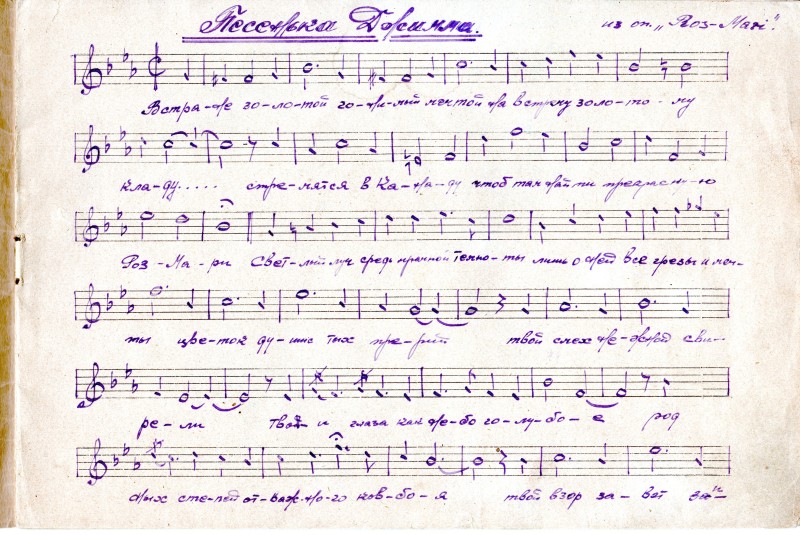 Песенька Джимма. из оп. „Роз-Мари".
Встра-не зо-ло-той го-ни-мый мечтой на встречу золо-то-му
кла-ду..... стре-мятся в Ка-на-ду чтоб там найти прекрасну-ю
Роз-Ма-ри Свет-лый луч средь мрачной темно-ты лишь о ней все грезы и меч-
ты цве-ток ду-шис тых пре-рий твой смех не-жней сви-
ре-ли твои глаза как не-бо го-лу-бо-е род
ных сте-пей от-важ-но-го ков-бо-я твой взор за-вет